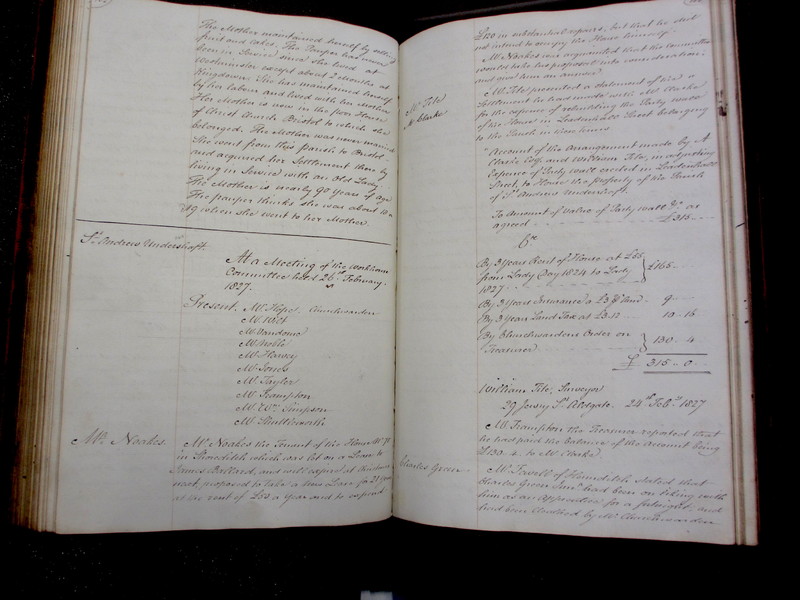 The Mother maintained herself by selling
fruit and cakes, The Pauper has never
been in Service since she lived at
Westminster except about 2 Months at
Kingsdown. She has maintained herself
by her labour and lived with her Mother
Her Mother is now in the poor House
of Christ Church Bristol to which she
belonged. Her Mother was never married
She went from this parish to Bristol
and acquired her Settlement there by
living in Service with an Old Lady
The Mother is nearly 90 years of age
The pauper thinks she was about 18 or
19 when she went to her Mother.
St. Andrew Undershaft.
At a Meeting of the Workhouse
Committee held 26th February
1827.
Present. Mr. Hope. Churchwarden
Mr. Vandome
Mr. Noble
Mr. Harvey
Mr. Jones
Mr. Taylor
Mr. Frampton
Mr. Wm. Simpson
Mr. Shuttleworth
Mr. Noakes.
Mr. Noakes the Tenant of the House
in Shoreditch which was let on a Lease to
James Ballard, and will expire at
next, proposed to take a new Lease for 21 years
at the rent of £50 a year and to expend
£120 in substantial repairs, but that he did
not intend to occupy the House himself.
Mr. Noakes was acquainted that the Committee
would take his proposal into consideration,
and give him an answer.
Mr. Tite
Mr. Clarke
Mr. Tite presented a statement of the
Settlement he had made with Mr. Clarke
for the expence of rebuilding the Party Wall
of his House in Leadenhall Street belonging
to the Parish in these terms
"Account of the Arrangement made by
Clarke Esq. and William Tite, in adjusting
Expence of Party wall erected in Leadenhall
Street, to House the property of the Parish
of St. Andrew Undershaft.
To Amount of value of Party wall &c. as
agreed £315
Cr.
By 3 Years Rent of House at £55
from Lady Day 1824 to Lady £165
1827
By 3 Years Insurance a £3 9
By 3 Years Land Tax at £3.12 10 16
By Churchwardens Order on
Treasurer 130 4
£ 315 0
William Tite, Surveyor
29 Jewry St. Aldgate. 24th Feby. 1827
Mr. Frampton the Treasurer reported that
he had paid the balance of the Account being
£130. 4. to Mr. Clarke.
Charles Green
Mr. Fawell of Houndsditch stated that
Charles Green had been on liking with
him as an Apprentice for a fortnight, and
had been Cloathed by Mr. Churchwarden